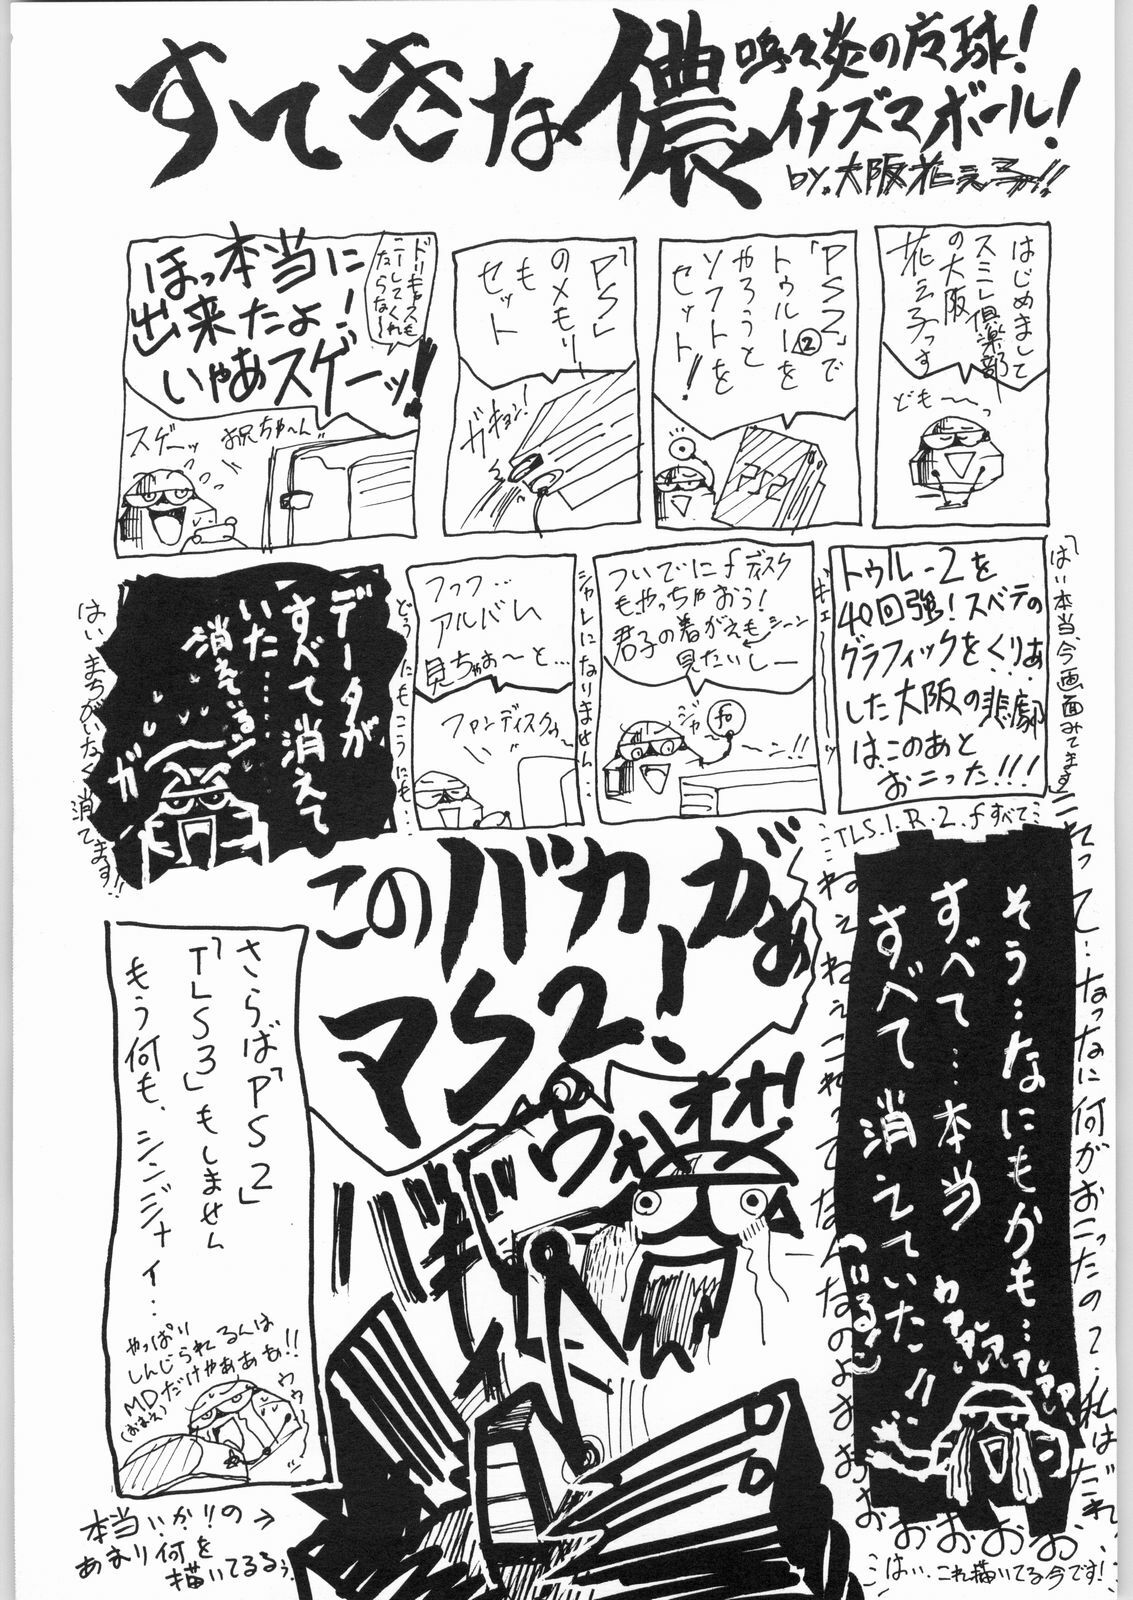 すてきな儂
嗚々炎の庭球!
イナズマボール!
by.大阪花
はじめまして
スミレ倶楽部
の大阪
花え子っす
ども〜〜っ
「PS2」で
トゥルー2を
やろうと
ソフトを
セット!!
PS2
「PS」
のメモリー
も
セット
ガキョン!
ほっ本当に
出来たよ!
いやあスゲーッ!!
スゲーッ
お兄ちゃ〜ん
トゥルー2を
40回強!スベテの
グラフィックをくりあ
した大阪の悲劇
はこのあと
おこった!!!
「はい本当、今画面みてます」
ギェ〜〜ッ
ついでにfディスク
もやっちゃおう!
君子の着がえも
シーン
見たいしー
ジャ
〜ン!!
シャレになりません…
フッフ…
アルバム
見ちゃお〜と…
ファンディスクゥ
どうにもこうにも…
データが
すべて消えて
いた……
消えている!
ガ
はいまちがいなく消えてます!!
TLS.1.R.2.fすべて
そう…なにもかも…
すべて…本当
すべて消えていた!!
これって…なっなに何がおこったの?私はだれ
ねぇねぇこれってなんなのよさ
おおおおおおお
はい、これ描いてる今です!
このバカがぁ
マS2!
ヴォオオ!
バギ
さらば「PS2」
「TLS3」もしません
もう何も、シンジナイ…
やっぱり
しんじられるんは
MDだけやああぁ!!
ウゥ〜
本当いいか!!の→
あまり何を
描いてるぅ